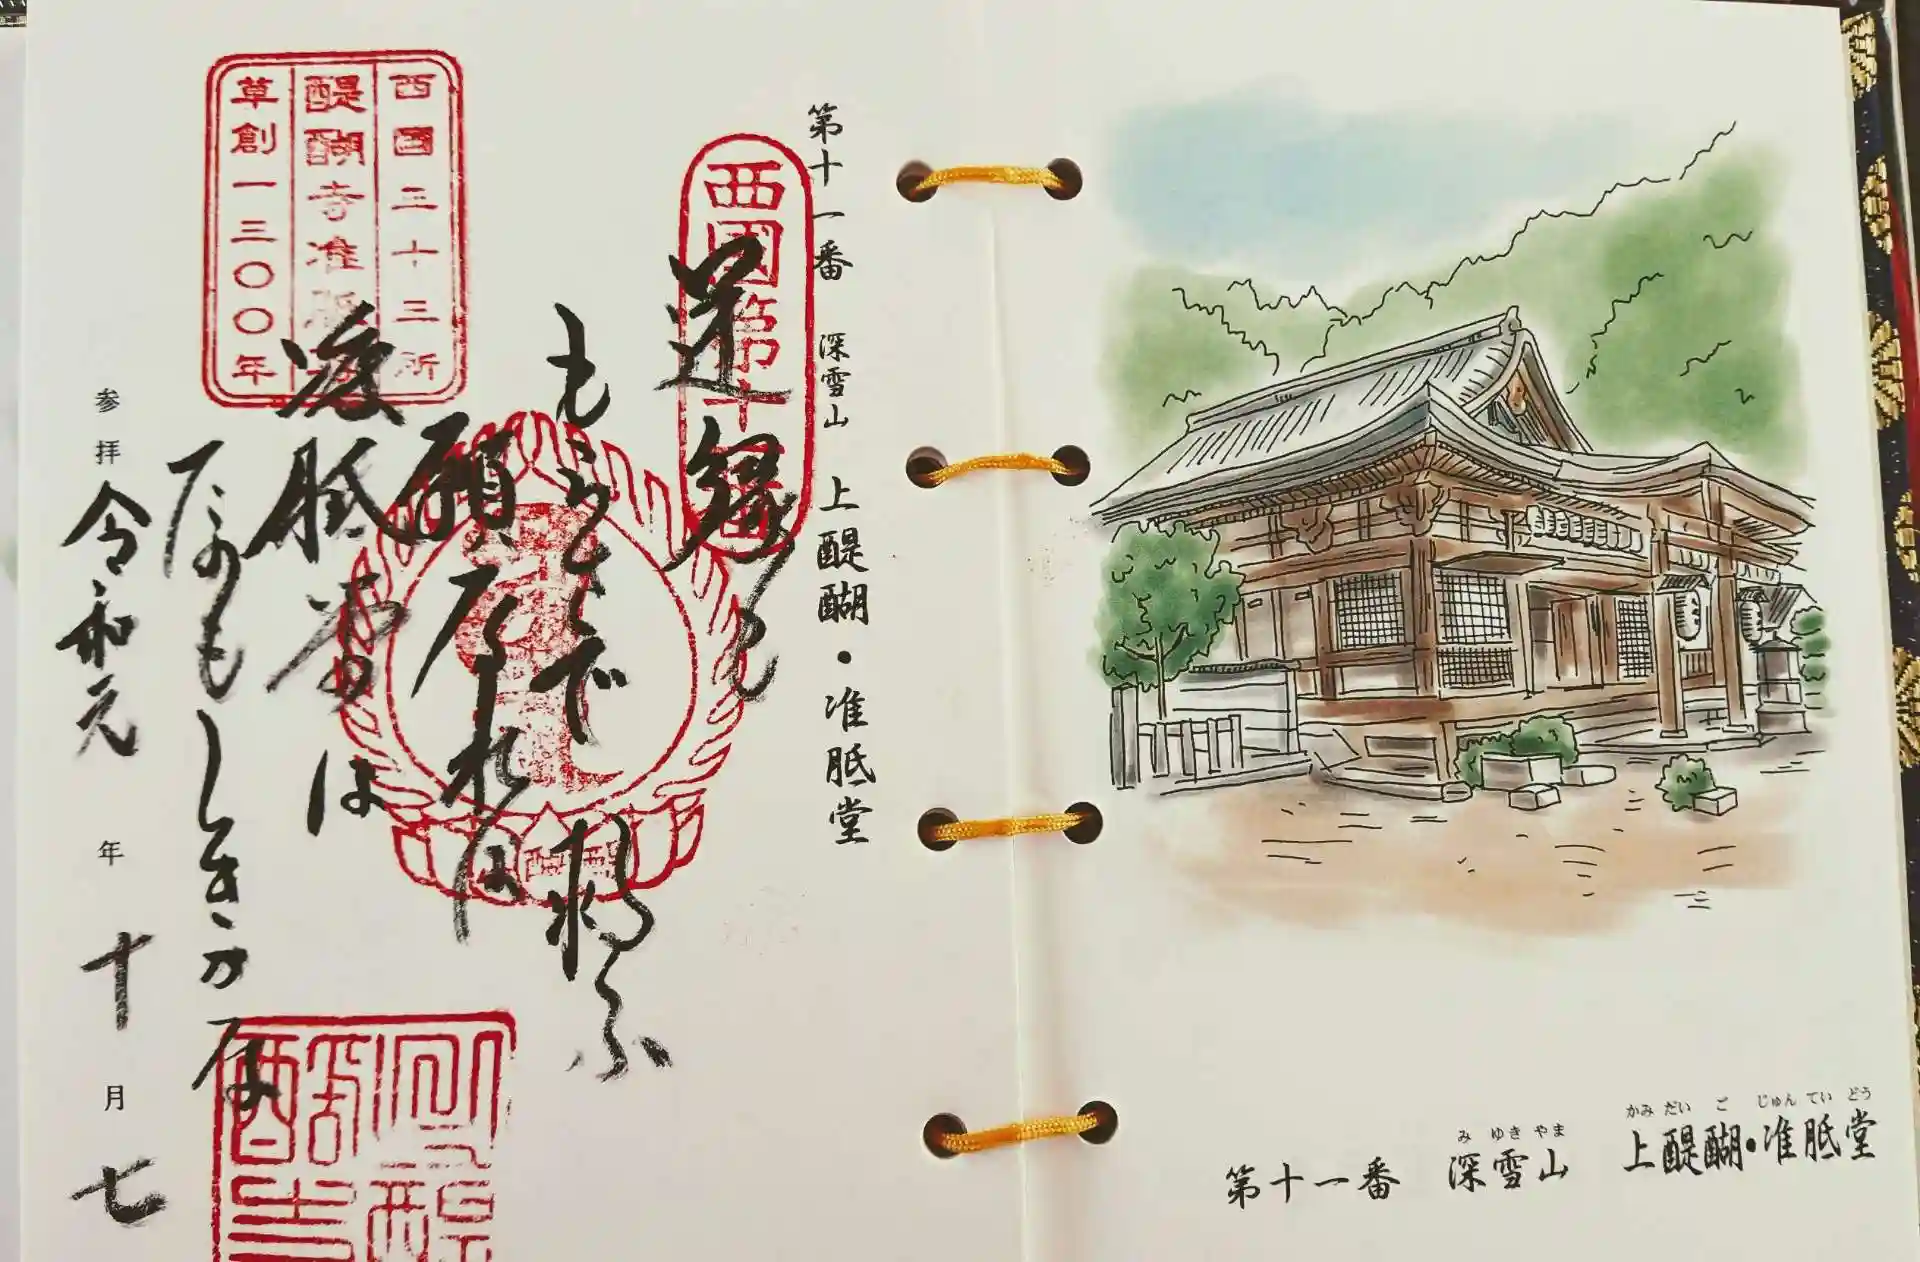 かみ だい ご じゅん てい どう
み ゆき やま
第十一番 深雪山 上醍醐・准胝堂
第十一番 深雪山 上醍醐・准胝堂
西國第十一番
逆縁も
もらさで救ふ
願なれば
准胝堂は
たのもしきかな
西国三十三所
醍醐寺准胝堂
草創一三〇〇年
参拝 令和元年十月七